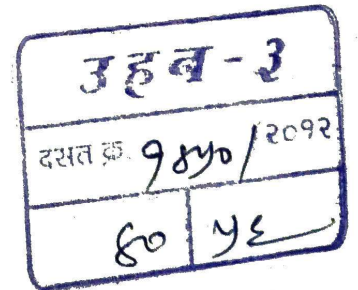 उहन - ३
दस्त क्र. १४५० / २०१२
४० ५६